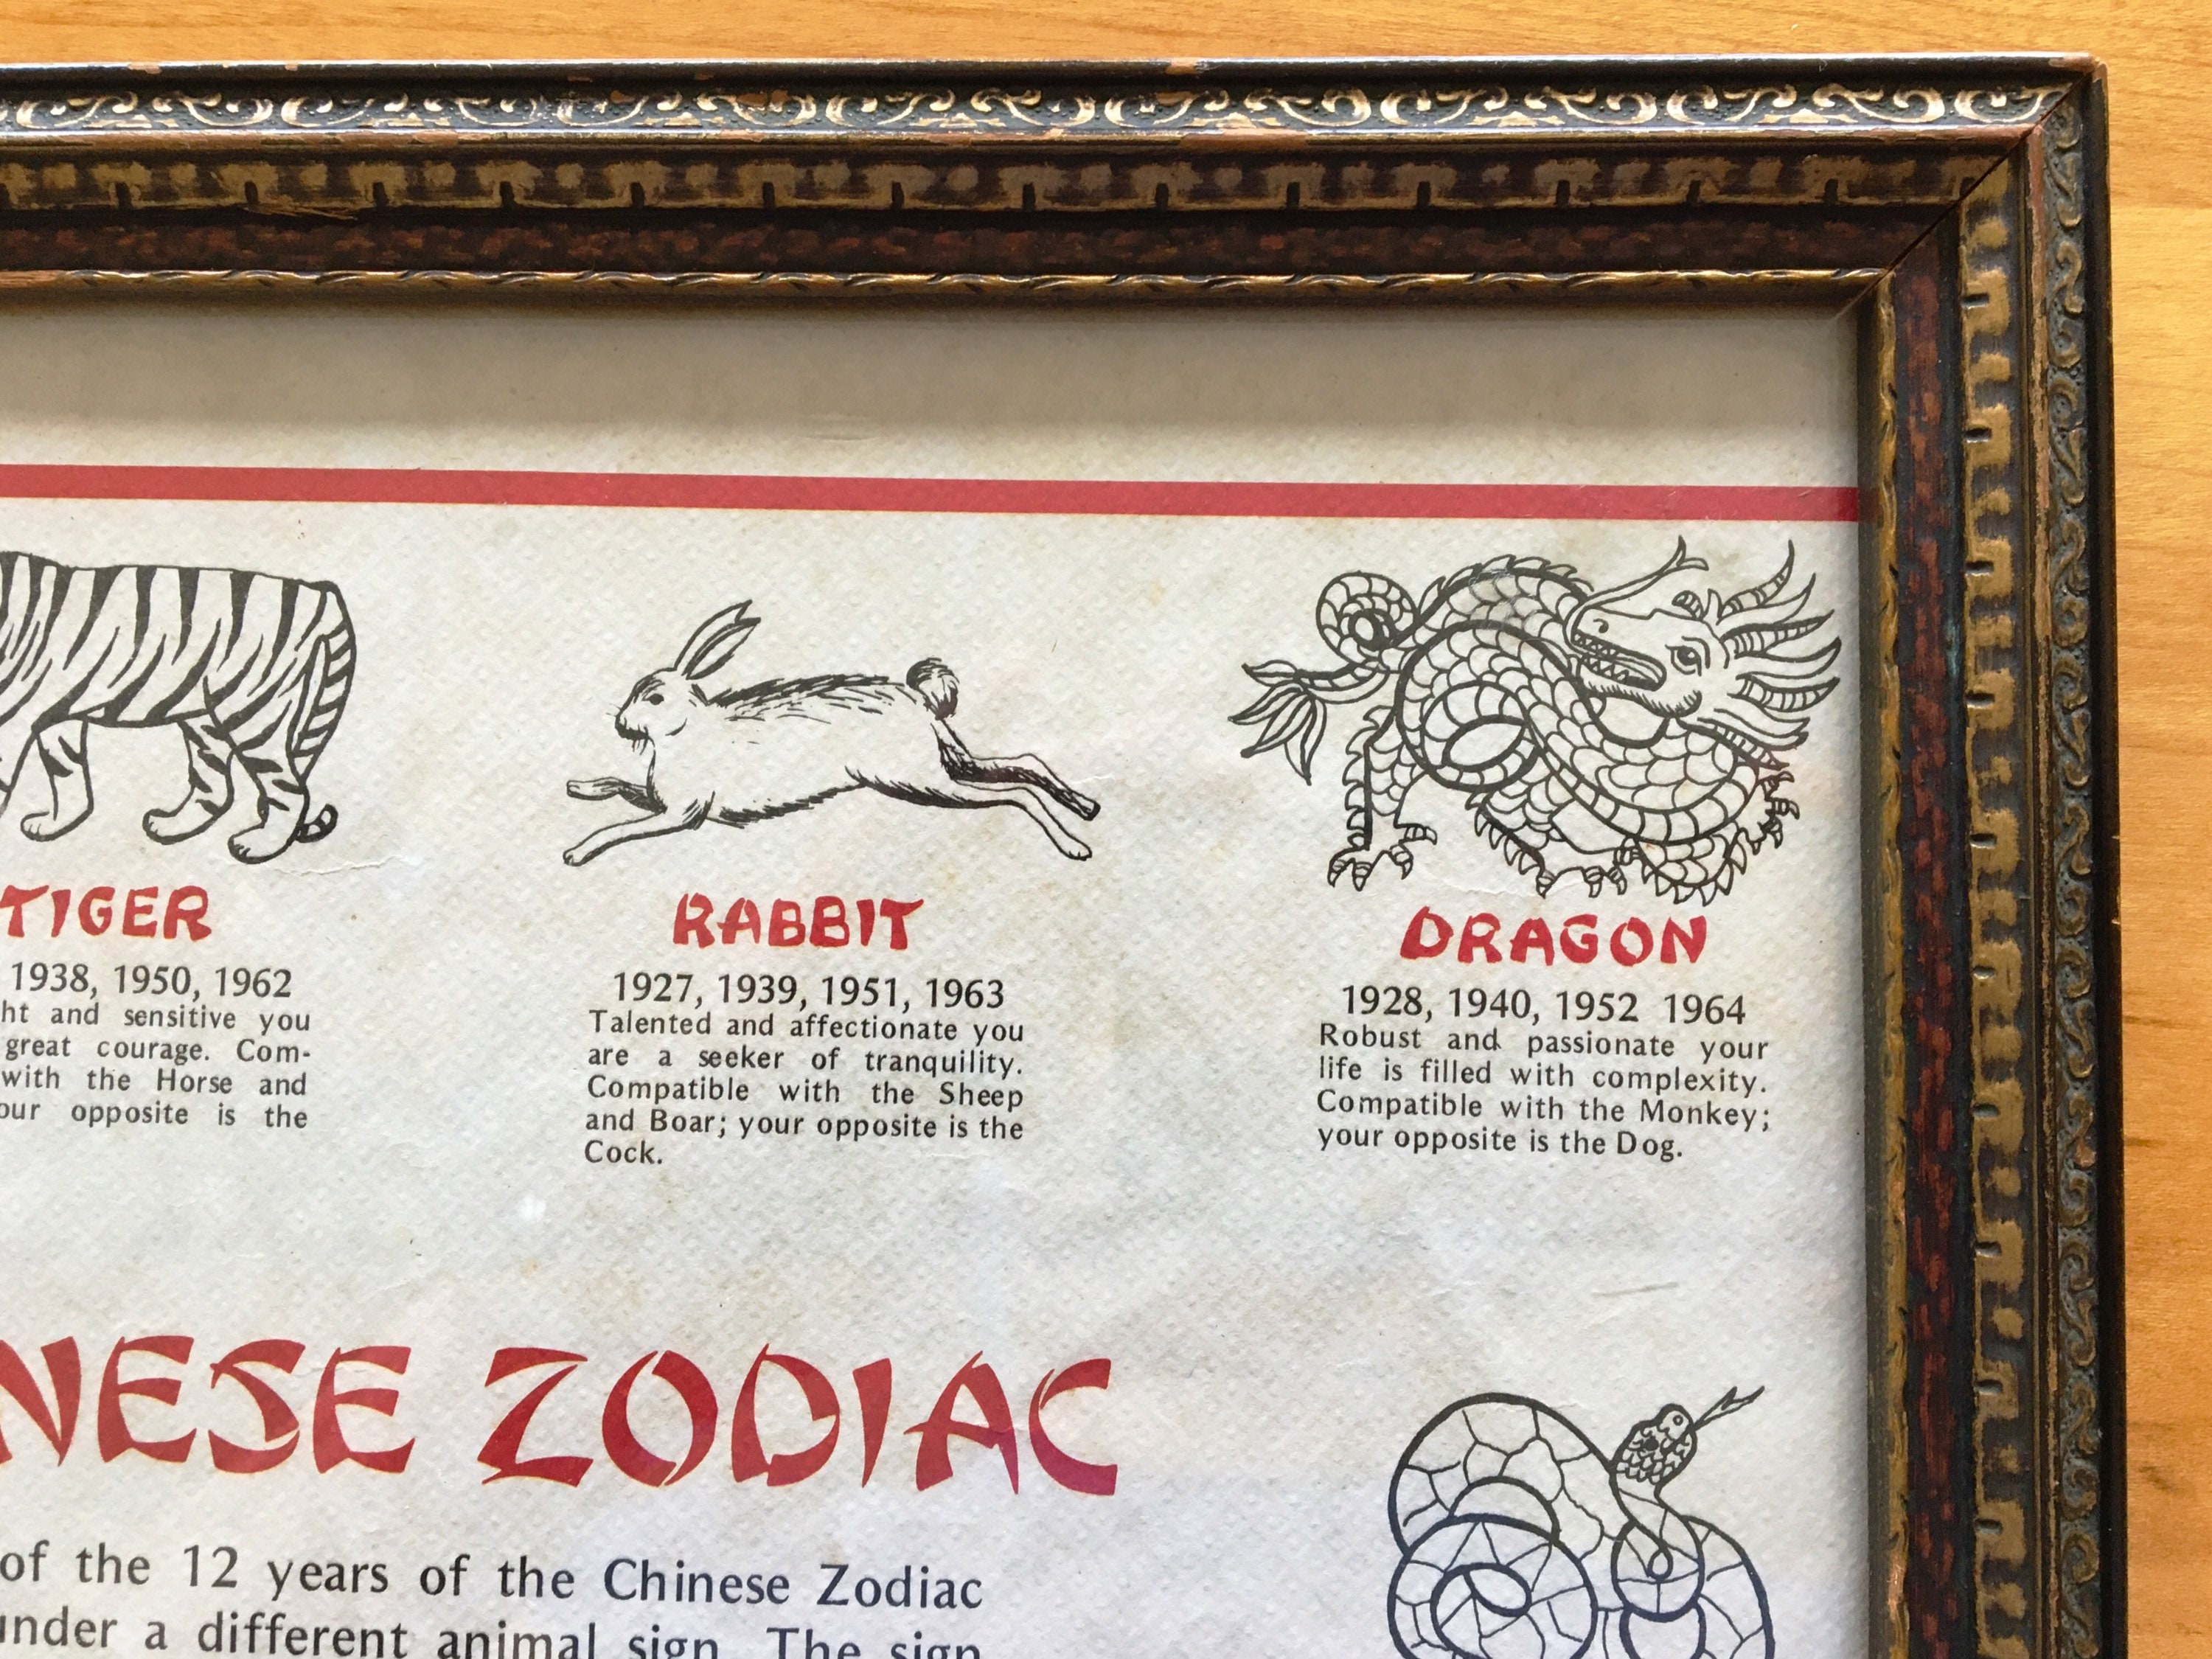 TIGER
1938, 1950, 1962
and sensitive you
great courage. Com-
with the Horse and
opposite is the
RABBIT
1927, 1939, 1951, 1963
Talented and affectionate you
are a seeker of tranquility.
Compatible with the Sheep
and Boar; your opposite is the
Cock.
DRAGON
1928, 1940, 1952 1964
Robust and passionate your
life is filled with complexity.
Compatible with the Monkey;
your opposite is the Dog.
ZODIAC
of the 12 years of the Chinese Zodiac
under a different animal sign. The sign